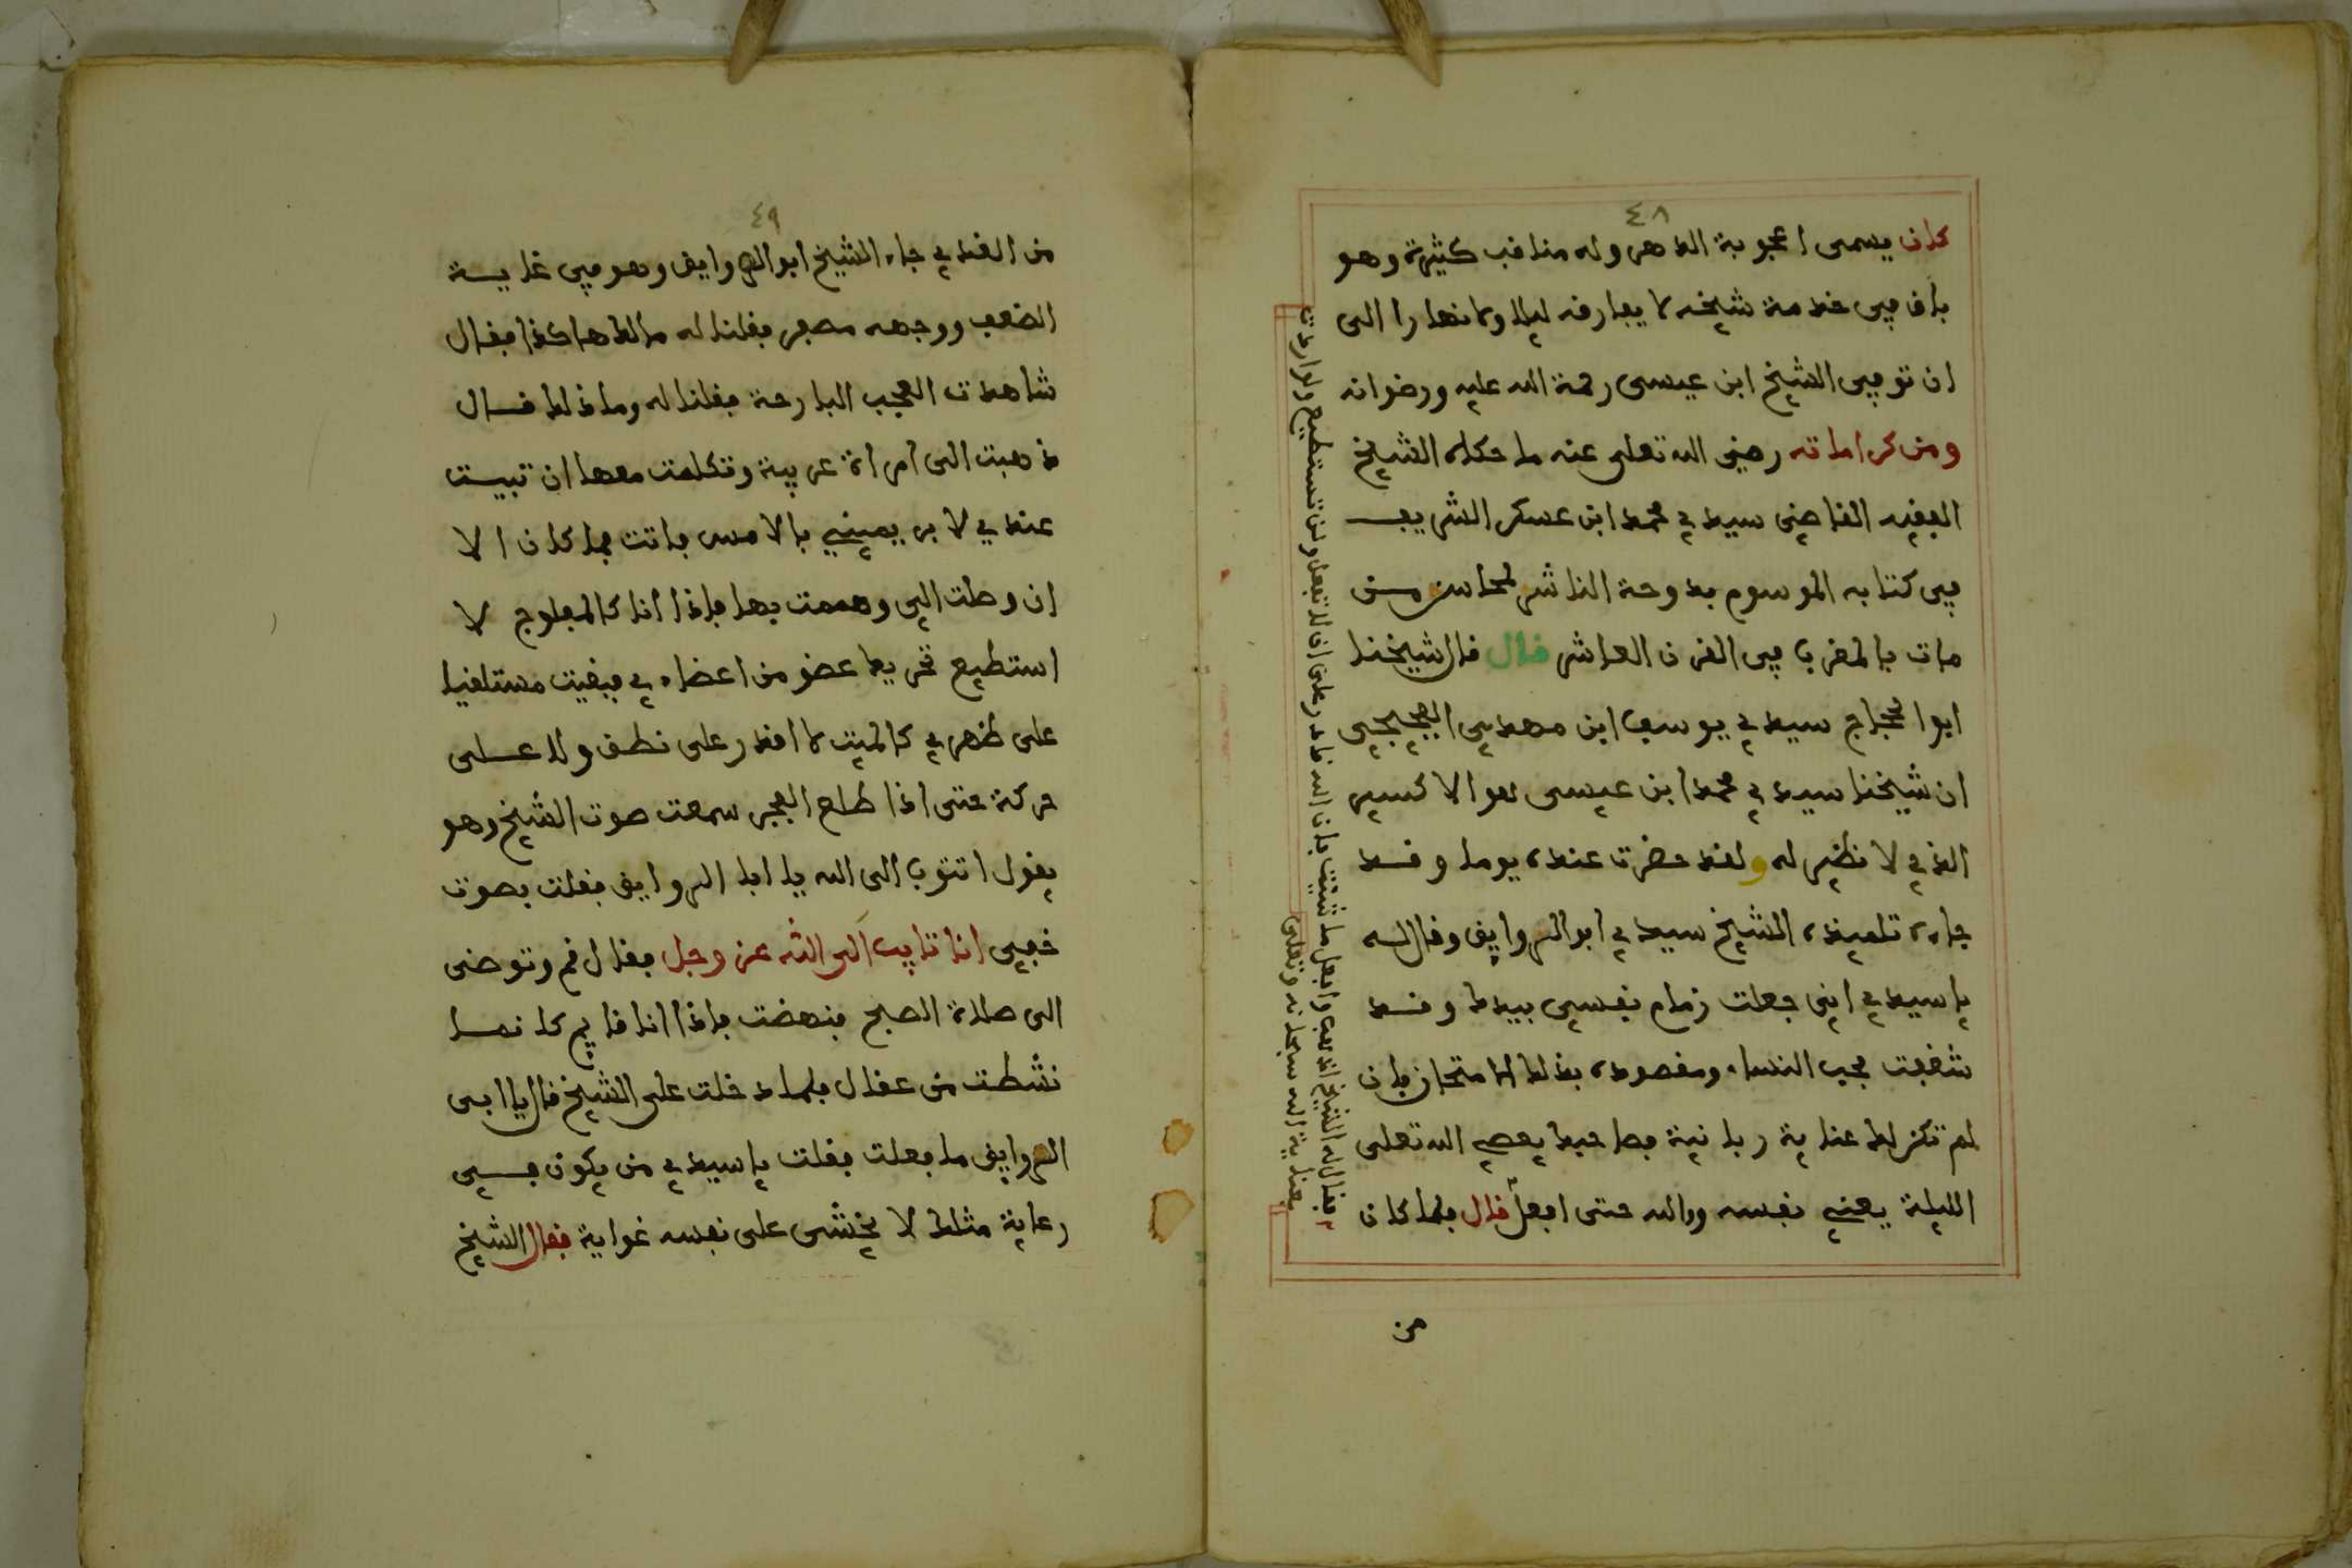 ٤٨
كان يسمى اعجوبة الدهر وله مناقب كثيرة وهو
باق في خدمة شيخه لا يفارقه ليلا ولا نهارا الى
ان توفي الشيخ ابن عيسى رحمة الله عليه ورضوانه
ومن كراماته رضي الله تعلى عنه ما حكاه الشيخ
الفقيه القاضي سيدي محمد ابن عسكر الشريف
في كتابه الموسوم بدوحة الناشر لمحاسن من
مات بالمغرب في القرن العاشر قال قال شيخنا
ابوا الحجاج سيدي يوسف ابن مهدي الفجيجي
ان شيخنا سيدي محمد ابن عيسى لهو الاكسير
الذي لا نظير له ولقد حضرت عنده يوما وقد
جاءه تلميذه الشيخ سيدي ابو الروايق وقال له
يا سيدي اني جعلت زمام نفسي بيدك وقد
شغفت بحب النساء ومقصوده بذلك الامتحان فان
لم تكن لك عناية ربانية فصاحبك يعصي الله تعلى
الليلة يعني نفسه ووالله حتى افعل قال فلما كان
فقال له الشيخ اذهب وافعل ما شئت فان الله قادر على ان لا تفعل ولن تستطيع ولو اردت
بعناية الله سبحانه وتعلى
من
٤٩
من الغد ي جاء الشيخ ابو الروايق وهو في غاية
الضعف ووجهه مصفر فقلنا له مالك هاكذا فقال
شاهدت العجب البارحة فقلنا له وما ذلك قال
ذهبت الى امراة عربية وتكلمت معها ان تبيت
عندي لابر يميني بالامس فاتت فما كان الا
ان وصلت الي وهممت بها فاذا انا كالمفلوج لا
استطيع تحريك عضو من اعضاءي فبقيت مستلقيا
على ظهري كالميت لا اقدر على نطق ولا على
حركة حتى اذا طلع الفجر سمعت صوت الشيخ وهو
يقول اتتوب الى الله يا ابا الروايق فقلت بصوت
خفي انا تايب الى الله عز وجل فقال قم وتوضى
الى صلاة الصبح فنهضت فاذا انا قايم كانما
نشطت من عقال فلما دخلت على الشيخ قال يا ابى
الروايق ما فعلت فقلت يا سيدي من يكون في
رعاية مثلك لا يخشى على نفسه غواية فقال الشيخ